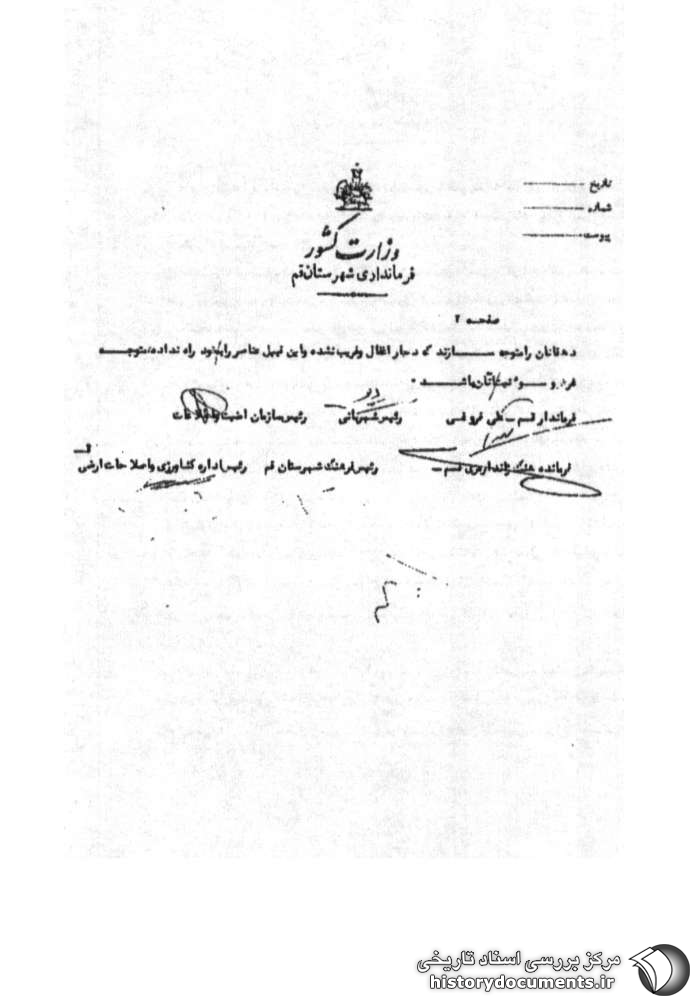 تاریخ
شماره
پیوست
وزارت کشور
فرمانداری شهرستان قم
صفحه ۲
دهقانان را متوجه سازند که دچار اغفال و فریب نشده و این قبیل عناصر را بخود راه نداده متوجه
سوء نیات آنان باشند.
فرماندار قم - رئیس شهربانی رئیس سازمان امنیت و اطلاعات
فرمانده هنگ ژاندارمری قم - رئیس فرهنگ شهرستان قم رئیس اداره کشاورزی و اصلاحات ارضی
مرکز بررسی اسناد تاریخی
historydocuments.ir